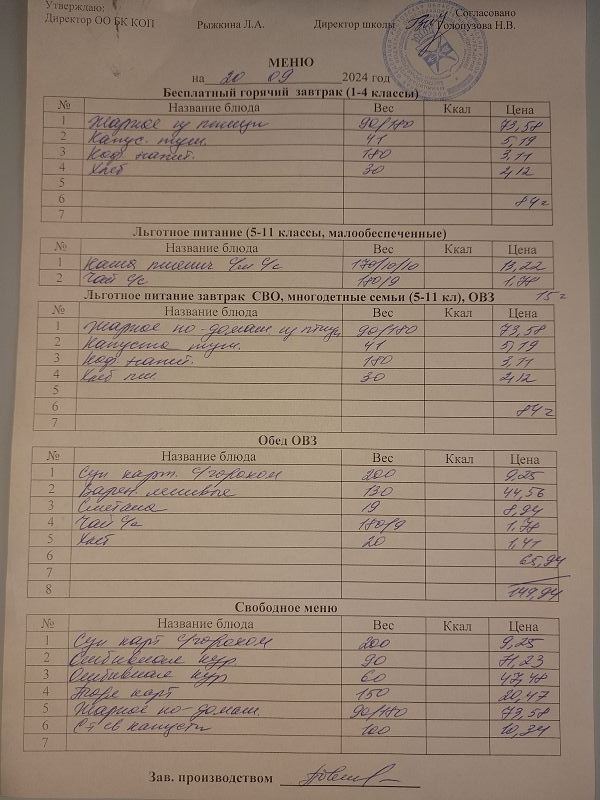 Утверждаю:
Согласовано
Директор ОО БК КОП Рыжкина Л.А. Директор школы Голопузова Н.В.
МЕНЮ
на 20 09 2024 год
Бесплатный горячий завтрак (1-4 классы)
№ Название блюда Вес Ккал Цена
1 Жаркое из птицы 90/180 73,58
2 Капус. туш. 41 5,19
3 Коф. напит. 180 3,11
4 Хлеб 30 2,12
5
6 84=
7
Льготное питание (5-11 классы, малообеспеченные)
№ Название блюда Вес Ккал Цена
1 Каша пшенич с/м с/с 170/10/10 13,22
2 Чай с/с 180/9 1,78
Льготное питание завтрак СВО, многодетные семьи (5-11 кл), ОВЗ 15=
№ Название блюда Вес Ккал Цена
1 Жаркое по-домаш из птицы 90/180 73,58
2 Капуста туш. 41 5,19
3 Коф. напит. 180 3,11
4 Хлеб пш. 30 2,12
5
6 84=
7
Обед ОВЗ
№ Название блюда Вес Ккал Цена
1 Суп карт. с/горохом 200 9,25
2 Варен. ленивые 130 44,56
3 Сметана 19 8,94
4 Чай с/с 180/9 1.78
5 Хлеб 20 1,41
6 65,94
7
8 149,94
Свободное меню
№ Название блюда Вес Ккал Цена
1 Суп карт с/горохом 200 9,25
2 Отбивное кур 90 71,23
3 Отбивное кур 60 47,48
4 Пюре карт 150 20,47
5 Жаркое по-домаш. 90/180 73,58
6 С-т св капусты 100 10,34
7
Зав. производством